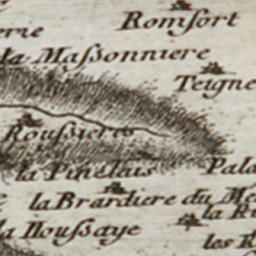 Romfort
erie
la Maſsonniere
Teigne
Rouſsieres
la Pinelais
Pala
la Brardiere du Me
la Ri
la Houſsaye
les R